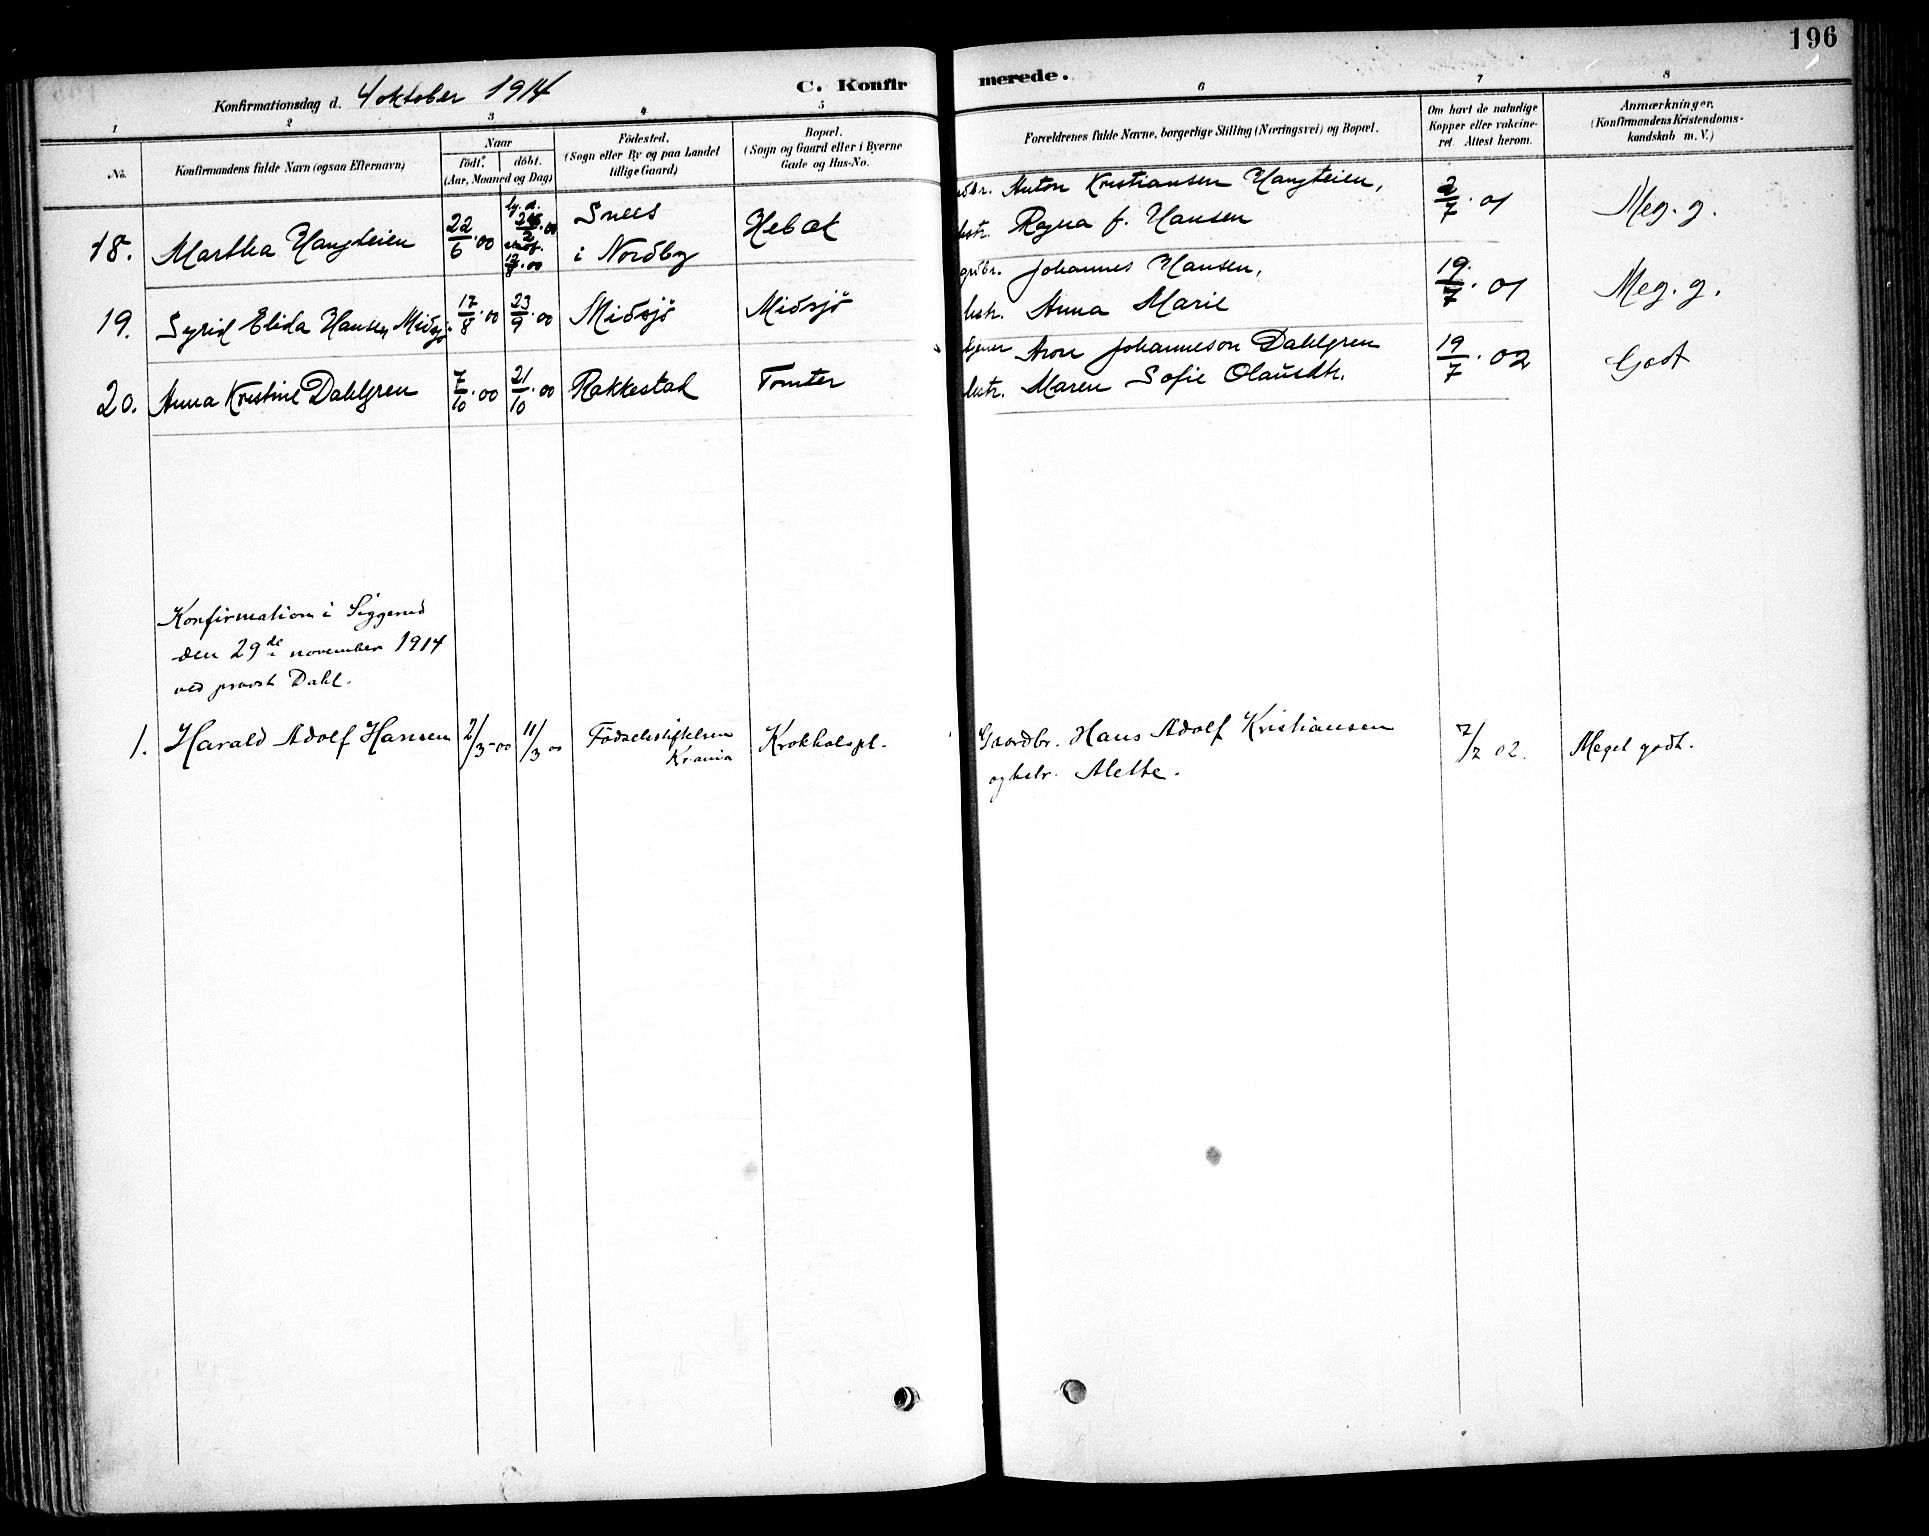 196
Konfirmationsdag d. 4 oktober 1914
C. Konfirmerede.
1 2 3 4 5 6 7 8
No.
Konfirmandens fulde Navn (ogsaa Efternavn)
Naar
födt. döbt.
(Aar, Maaned og Dag)
Födested.
(Sogn eller By og paa Landet
tillige Gaard)
Bopæl.
(Sogn og Gaard eller i Byerne
Gade og Hus-No.
Forældrenes fulde Navne, borgerlige Stilling (Næringsvei) og Bopæl.
Om havt de naturlige
Kopper eller vakcine-
ret. Attest herom.
Anmærkninger.
(Konfirmandens Kristendoms-
kundskab m. V.)
18. Martha Haugteien 22/6.00 12/8.00 i Nordby Hebæk
Anton Kristiansen Haugteien,
Ragna f. Hansen 2/7.01 Meg. g.
19. Syrid Elida Hansen, Midsjö 17/8.00 23/9.00 Midsjö Midsjö
Johannes Hansen,
hstr. Anna Marie 19/7.01 Meg. g.
20. Anna Kristine Dahlgren 7/10.00 21/10.00 Rakkestad Tomter
Aron Johanneson Dahlgren
hstr. Maren Sofie Olausdtr. 19/7.02 Godt
Konfirmation i Siggerud
den 29de november 1914
ved provst Dahl.
1. Harald Adolf Hansen 2/3-00 11/3 00 Födselsstiftelsen Krania Krokholspl.
Gaardbr. Hans Adolf Kristiansen
og hstr. Alette. 7/7 02. Meget godt.